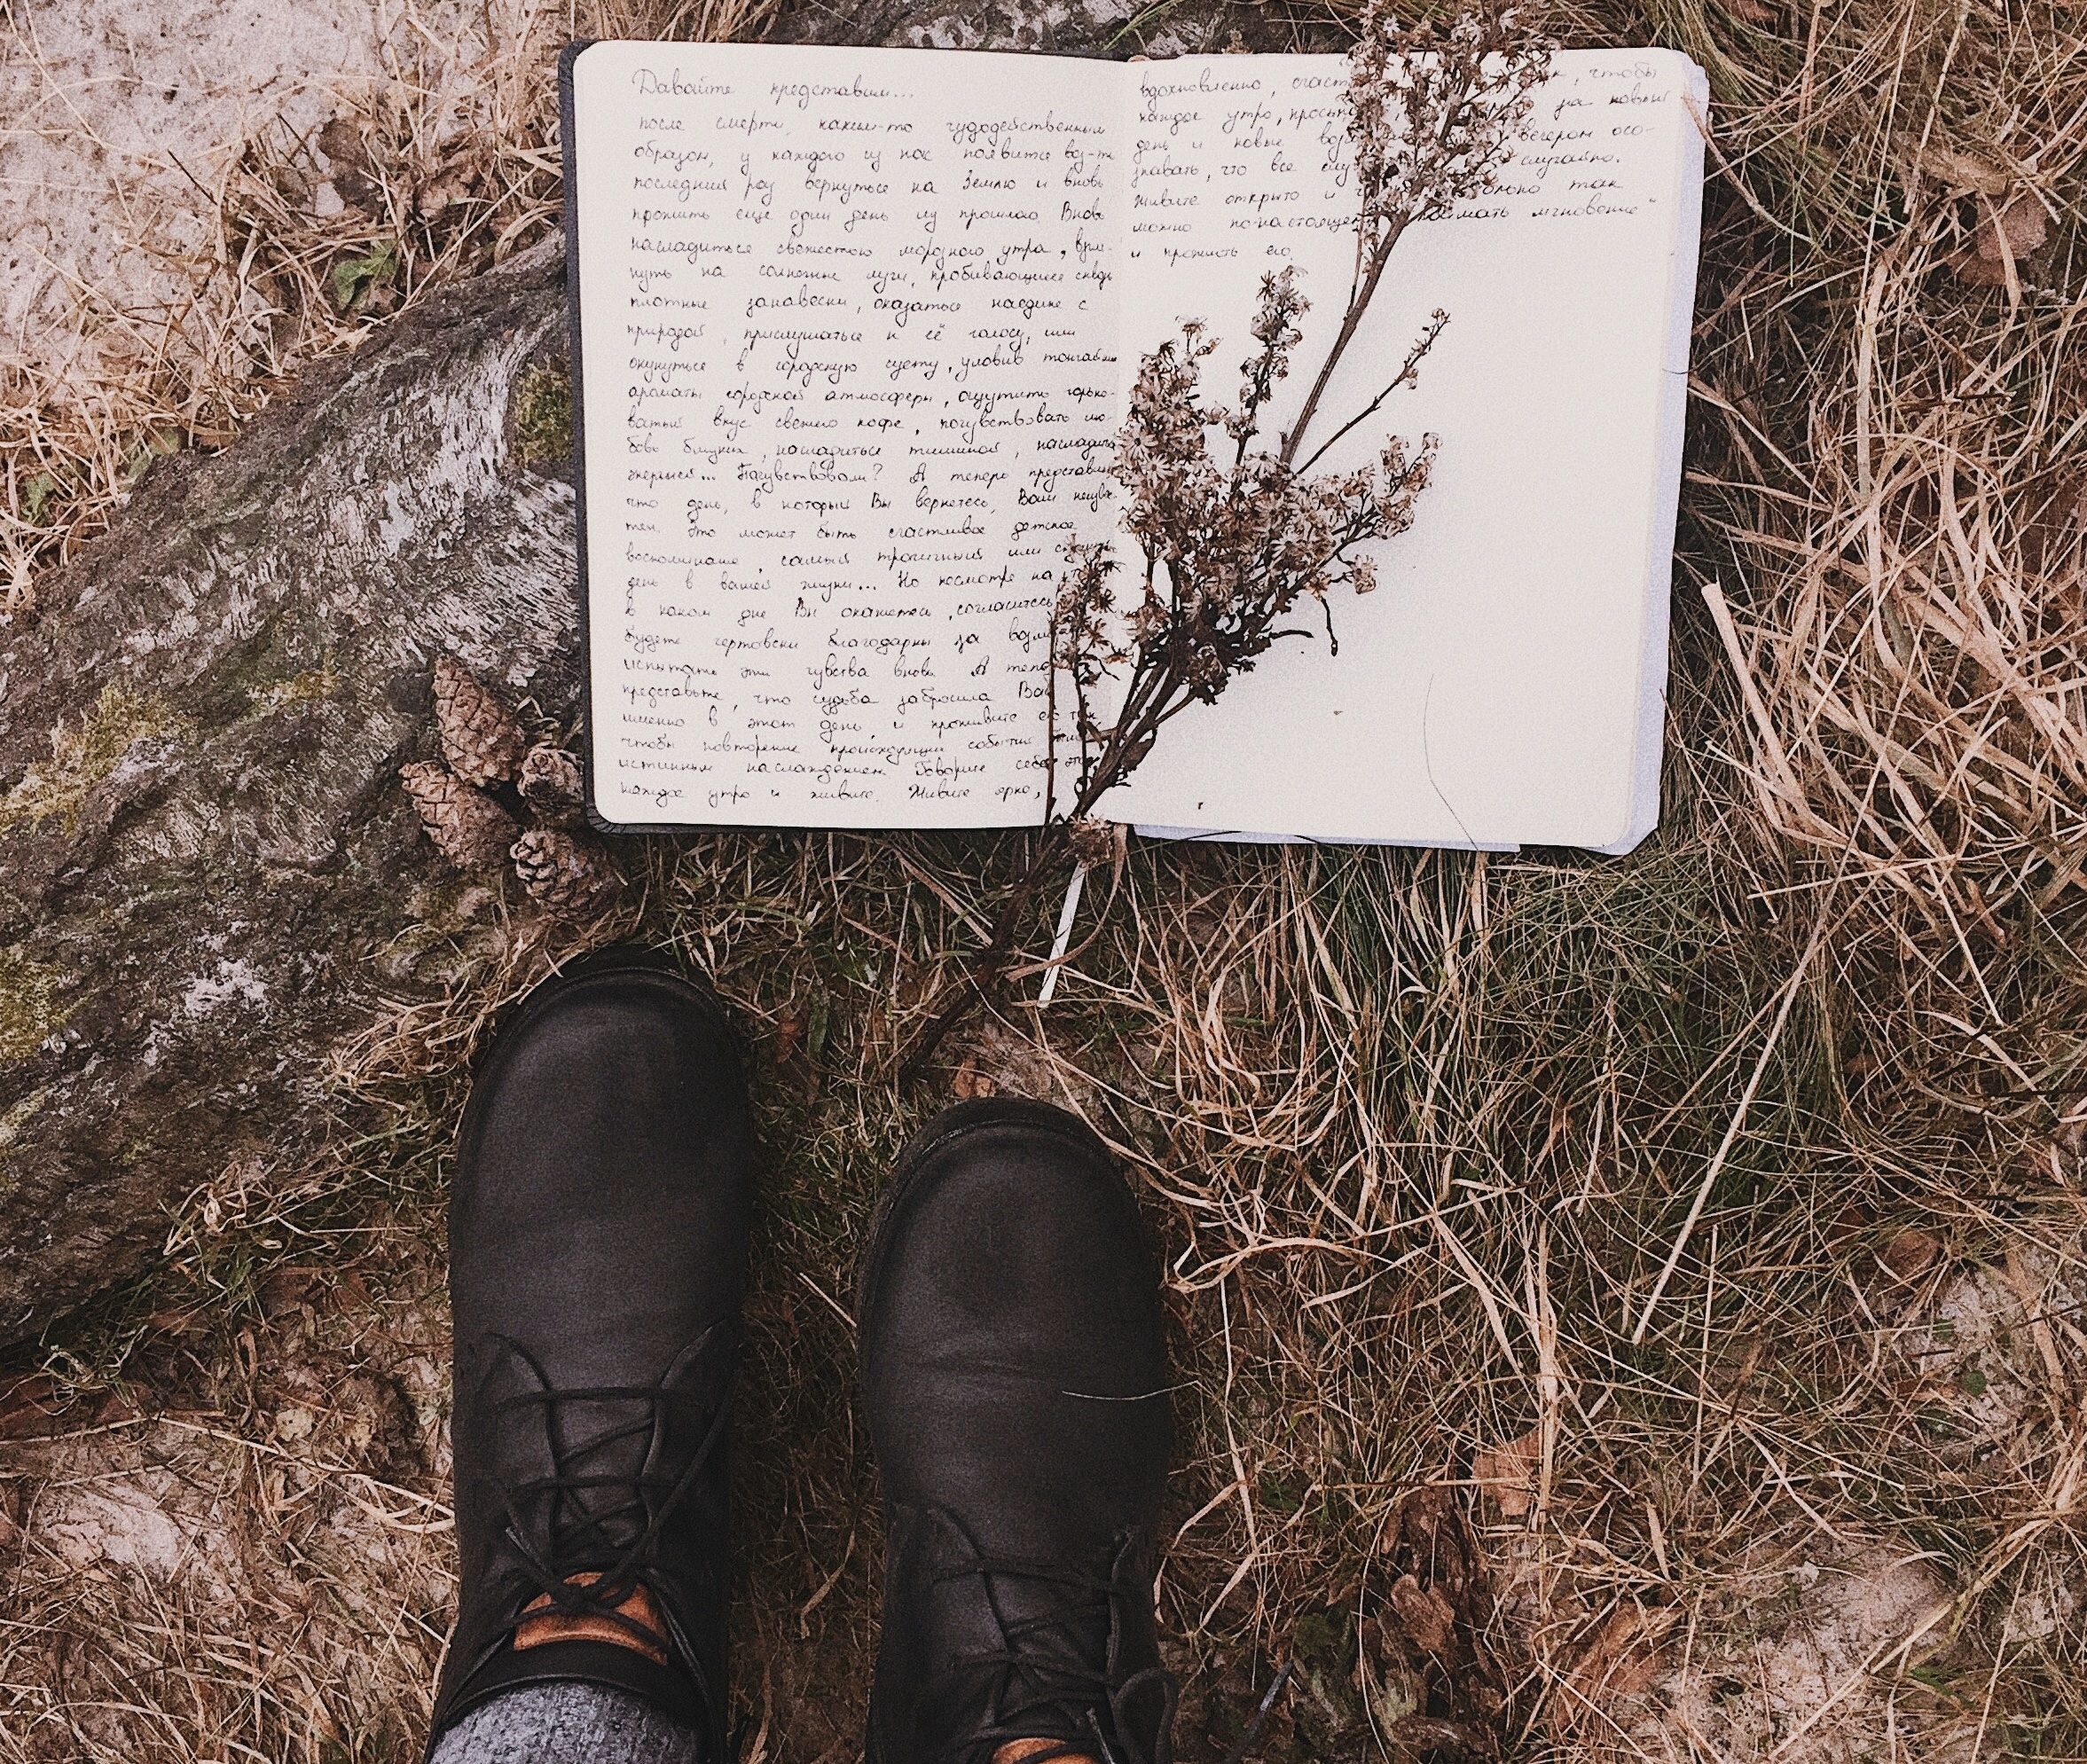 Давайте представим...
после смерти, каким-то чудодейственным
образом, у каждого из нас появится воз-ть
последний раз вернуться на Землю и вновь
прожить еще один день из прошлого. Вновь
насладиться свежестью морозного утра, взгля-
нуть на солнечные лучи, пробивающиеся сквозь
плотные занавески, оказаться наедине с
природой, прислушаться к её голосу, или
окунуться в городскую суету, уловив тончайшие
ароматы городской атмосферы, ощутить горько-
ватый вкус свежего кофе, почувствовать лю-
бовь близких, насладиться тишиной, насладиться
энергией... Почувствовали? А теперь представьте
что день, в который Вы вернетесь, Вам неизвес-
тен. Это может быть счастливое детское
воспоминание, самый трагичный или
день в вашей жизни... Но несмотря на
в каком дне Вы окажетесь, согласитесь
будете чертовски благодарны за
испытать эти чувства вновь. А
представьте, что судьба забросила Вас
именно в этот день и проживите его так
чтобы повторение происходящих событий
истинным наслаждением. Говорите себе это
каждое утро и живите. Живите ярко,
вдохновленно, чтобы
каждое утро, за новый
день и новые вечером осо-
знавать, что все случайно.
Живите открыто и только так
можно по-настоящему мгновение"
и прожить его.